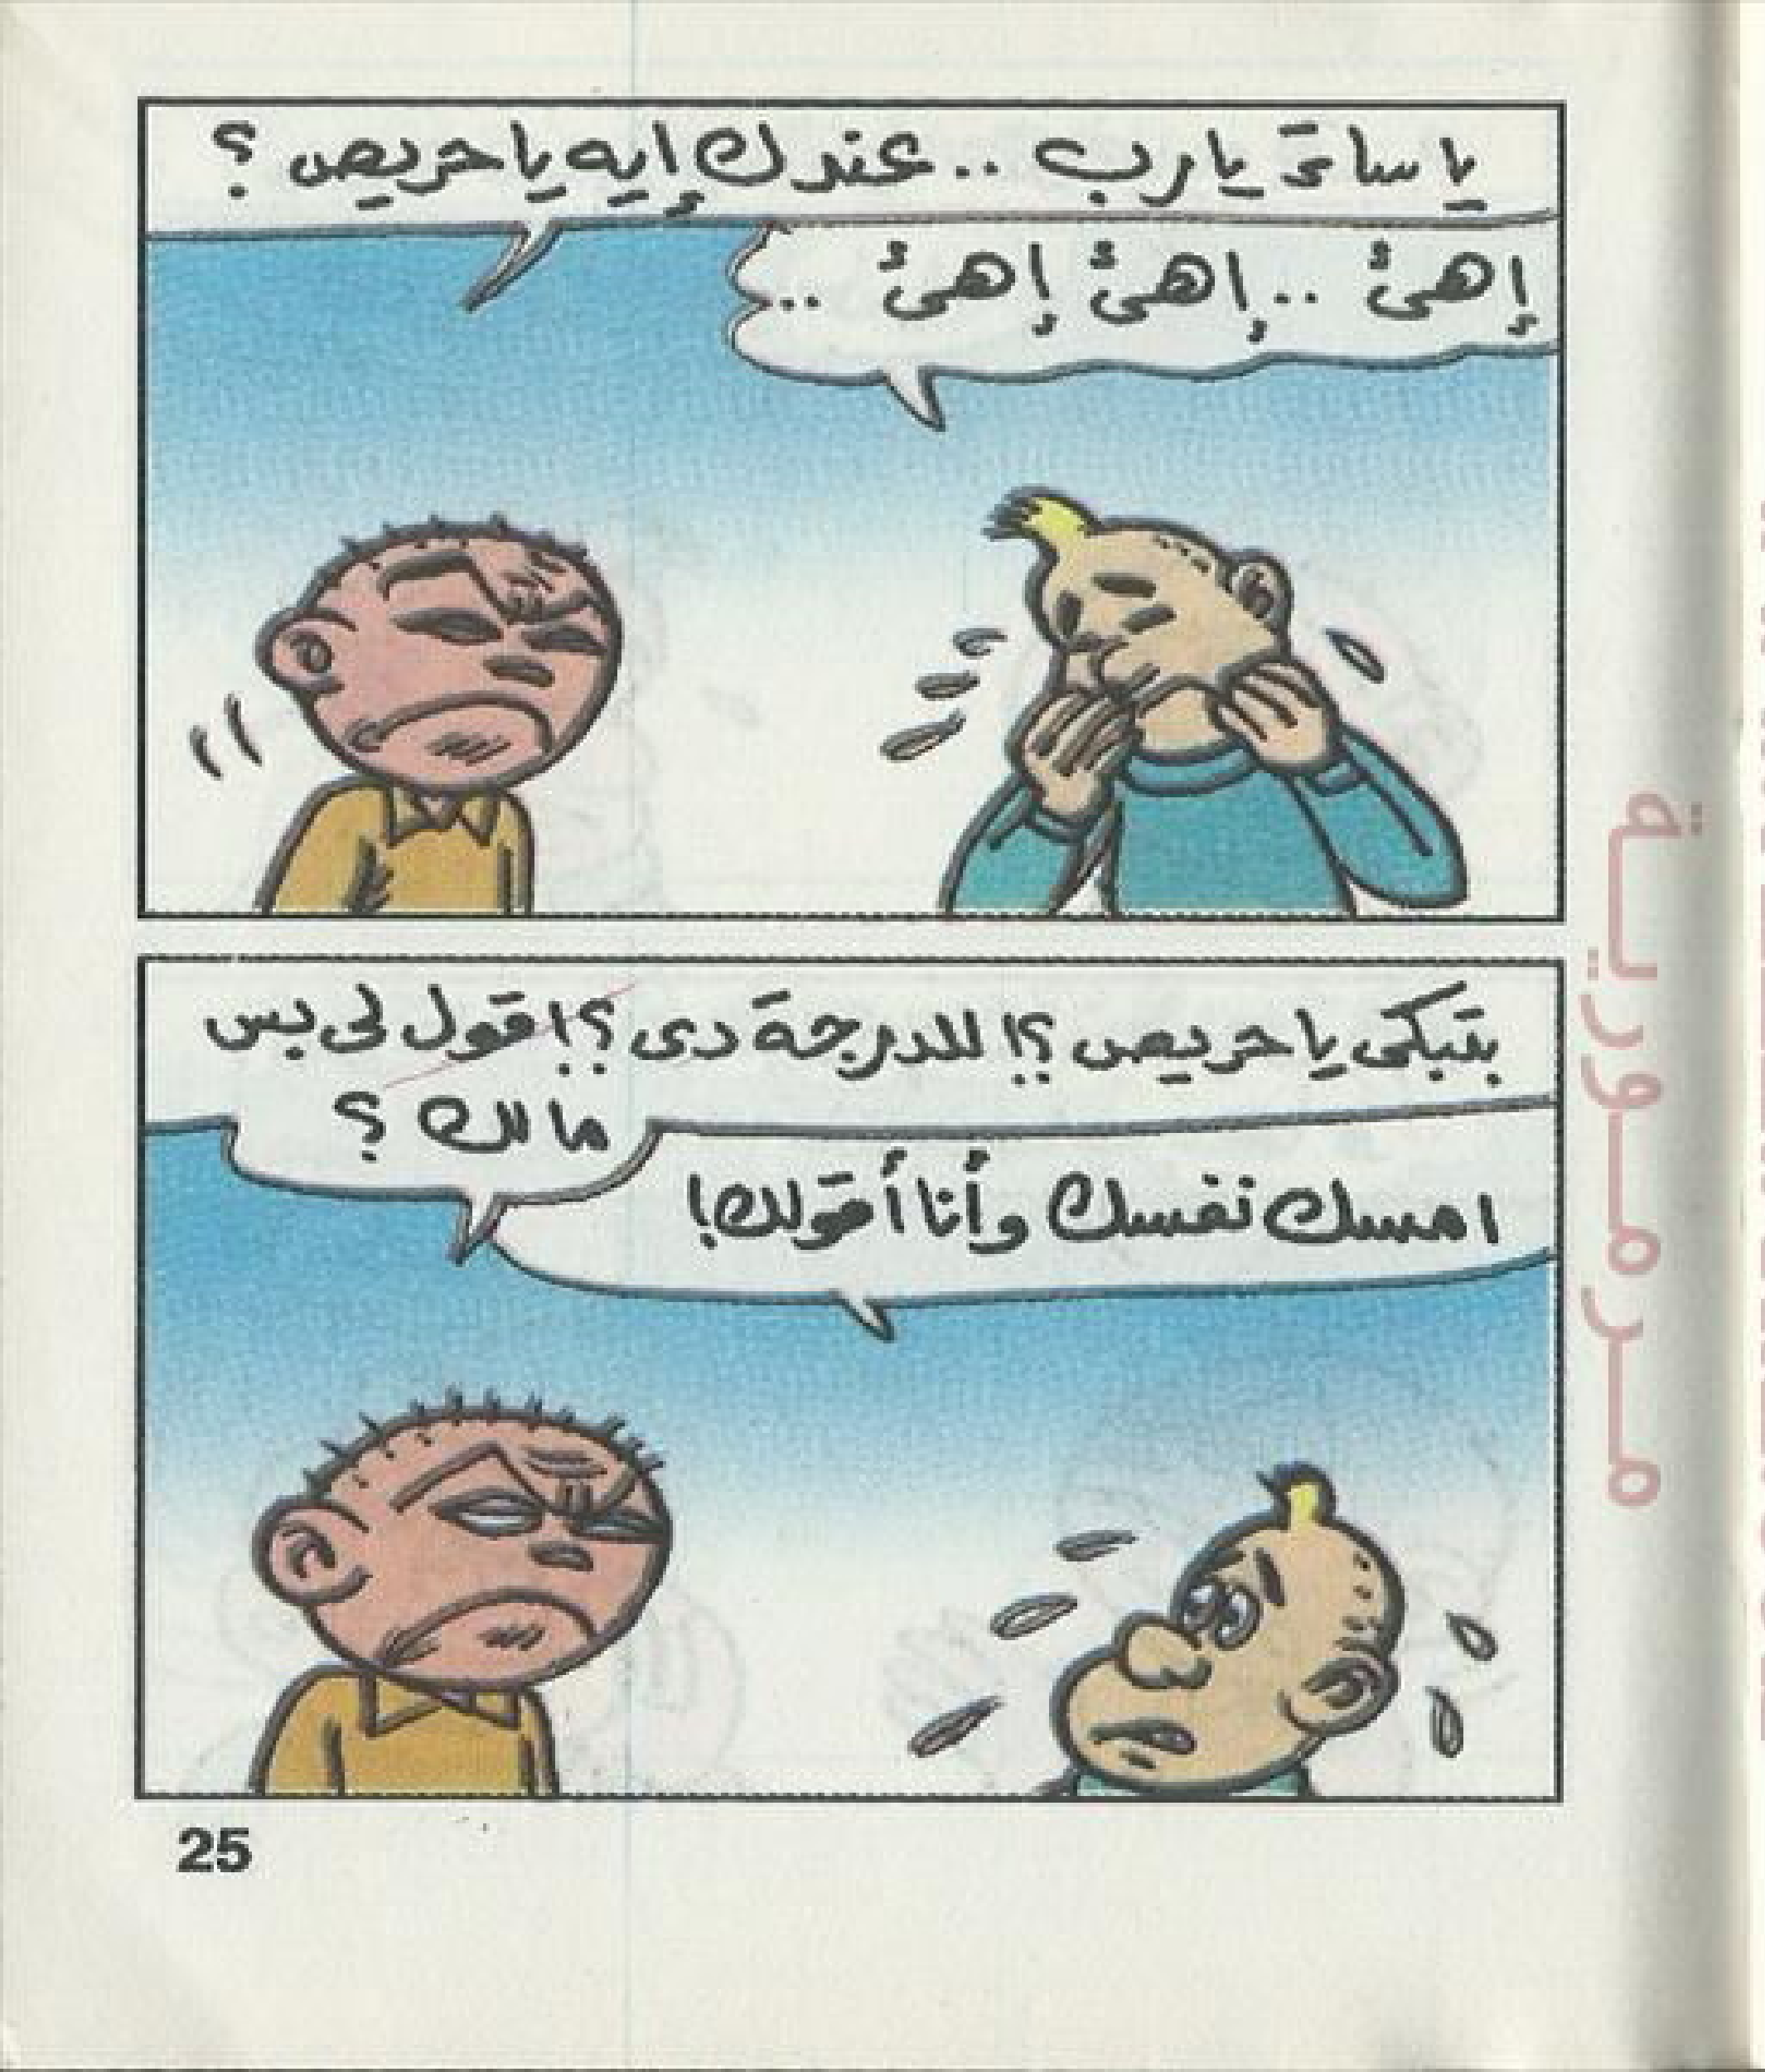 يا ساتر يارب .. عندك إيه يا حريص ؟
إهئ .. إهئ إهئ ..
بتبكى يا حريص ؟! للدرجة دى ؟! قول لى بس
مالك ؟
امسك نفسك وأنا أقولك!
مرمورية
25